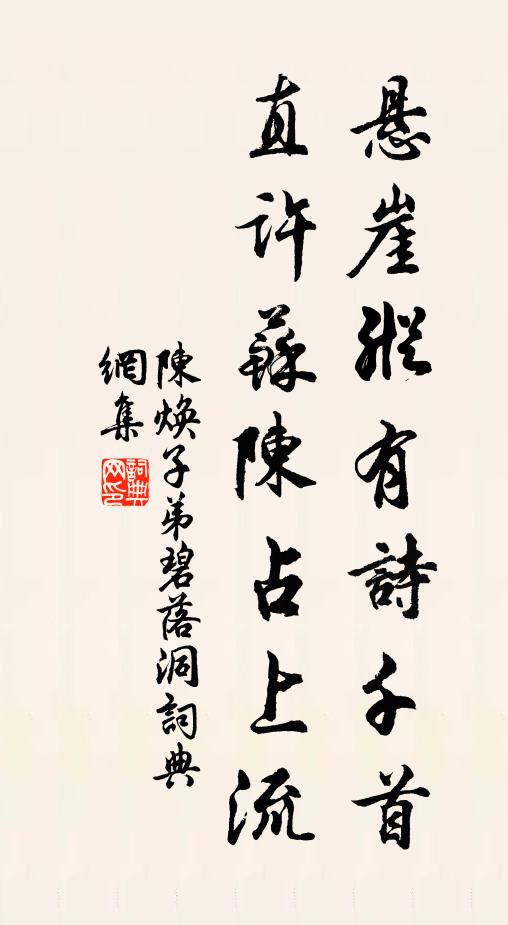 悬崖縱有詩千首
直許蘇陳占上流
陳煥子弟碧落洞詞典
網集
詞典
网印